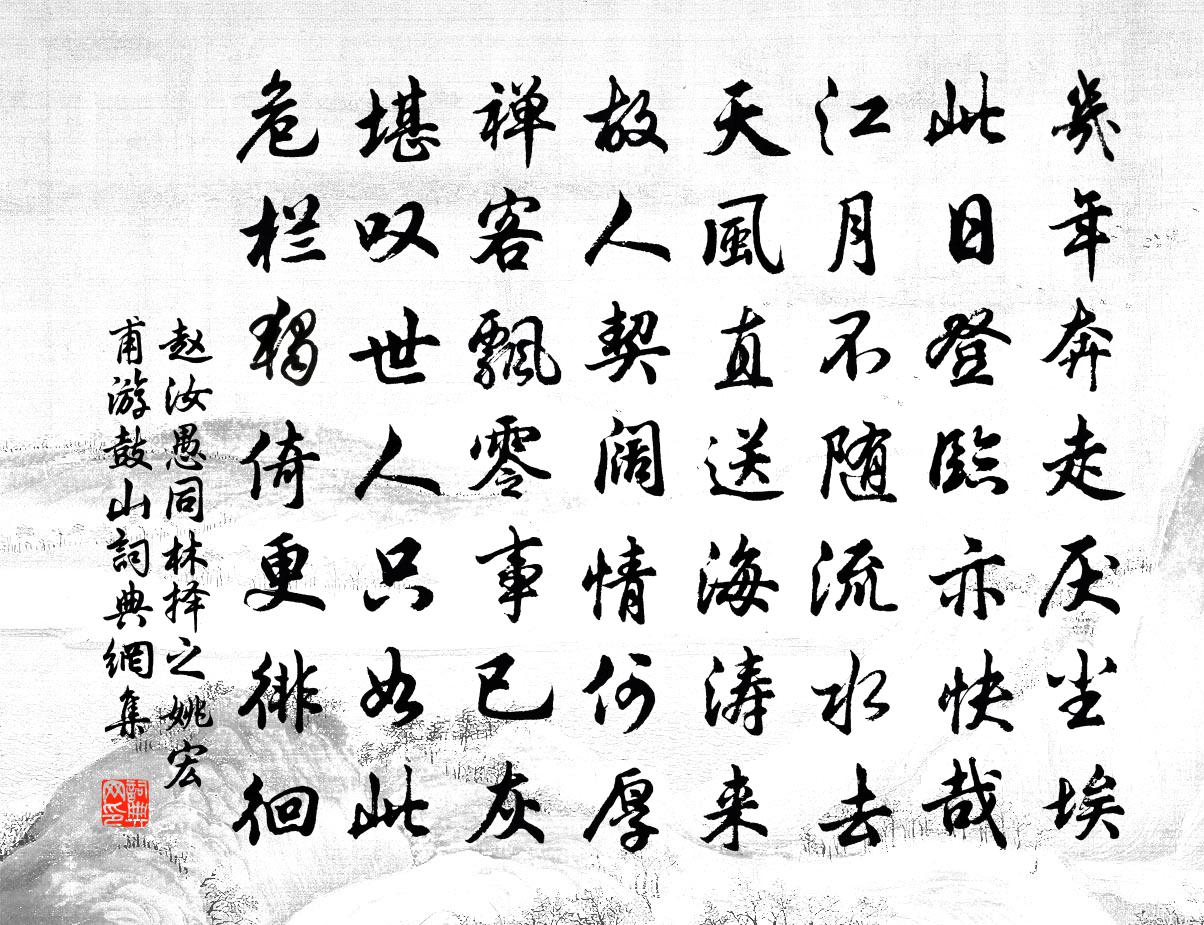 幾年奔走厌尘埃
此日登臨亦快哉
江月不随流水去
天風直送海涛来
故人契阔情何厚
禅客飄零事已灰
堪叹世人只如此
危栏獨倚更徘徊
赵汝愚同林择之姚宏
甫游鼓山詞典網集
詞典
网印